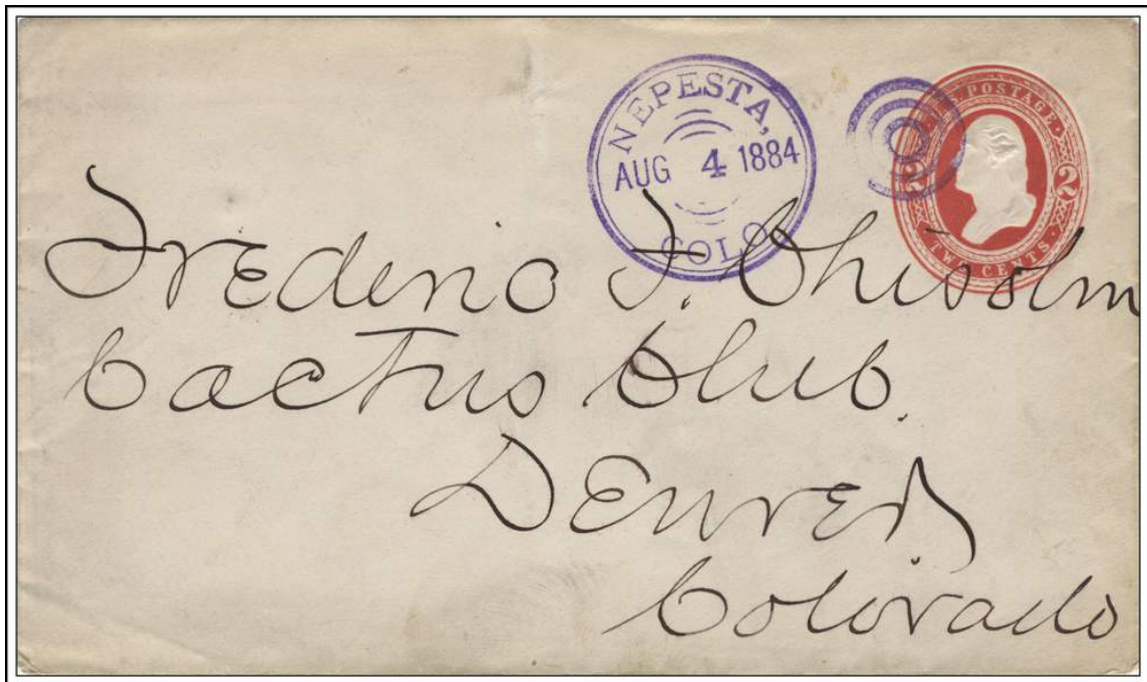 NEPESTA,
AUG 4 1884
COLO.
U.S. POSTAGE.
2 2
TWO CENTS.
Frederic J. Chisolm
Cactus Club.
Denver
Colorado